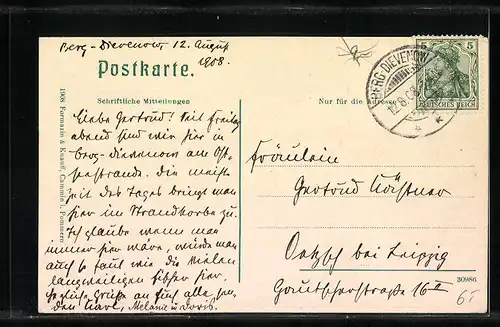 Berg-Dievenow, 12. August
1908.
Postkarte.
Schriftliche Mitteilungen
Nur für die Adresse
BERG-DIEVENOW
12.8.08
5 5
DEUTSCHES REICH
1908 Formazin & Knauff, Cammin i. Pommern
Liebe Gertrud! Seit Freitag
abend sind wir hier in
Berg-Dievenow am Ost-
seestrande. Die meiste
Zeit des Tages bringt man
hier im Strandkorbe zu.
Ich glaube wenn man
immer hier wäre, würde man
auch so faul wie die vielen
langweiligen Fischer hier.
Herzliche Grüße an Euch alle sen-
den Karl, Melanie u. Doris.
Fräulein
Gertrud
Oetzsch bei Leipzig
Gautscherstraße 16 II
30986
6.-